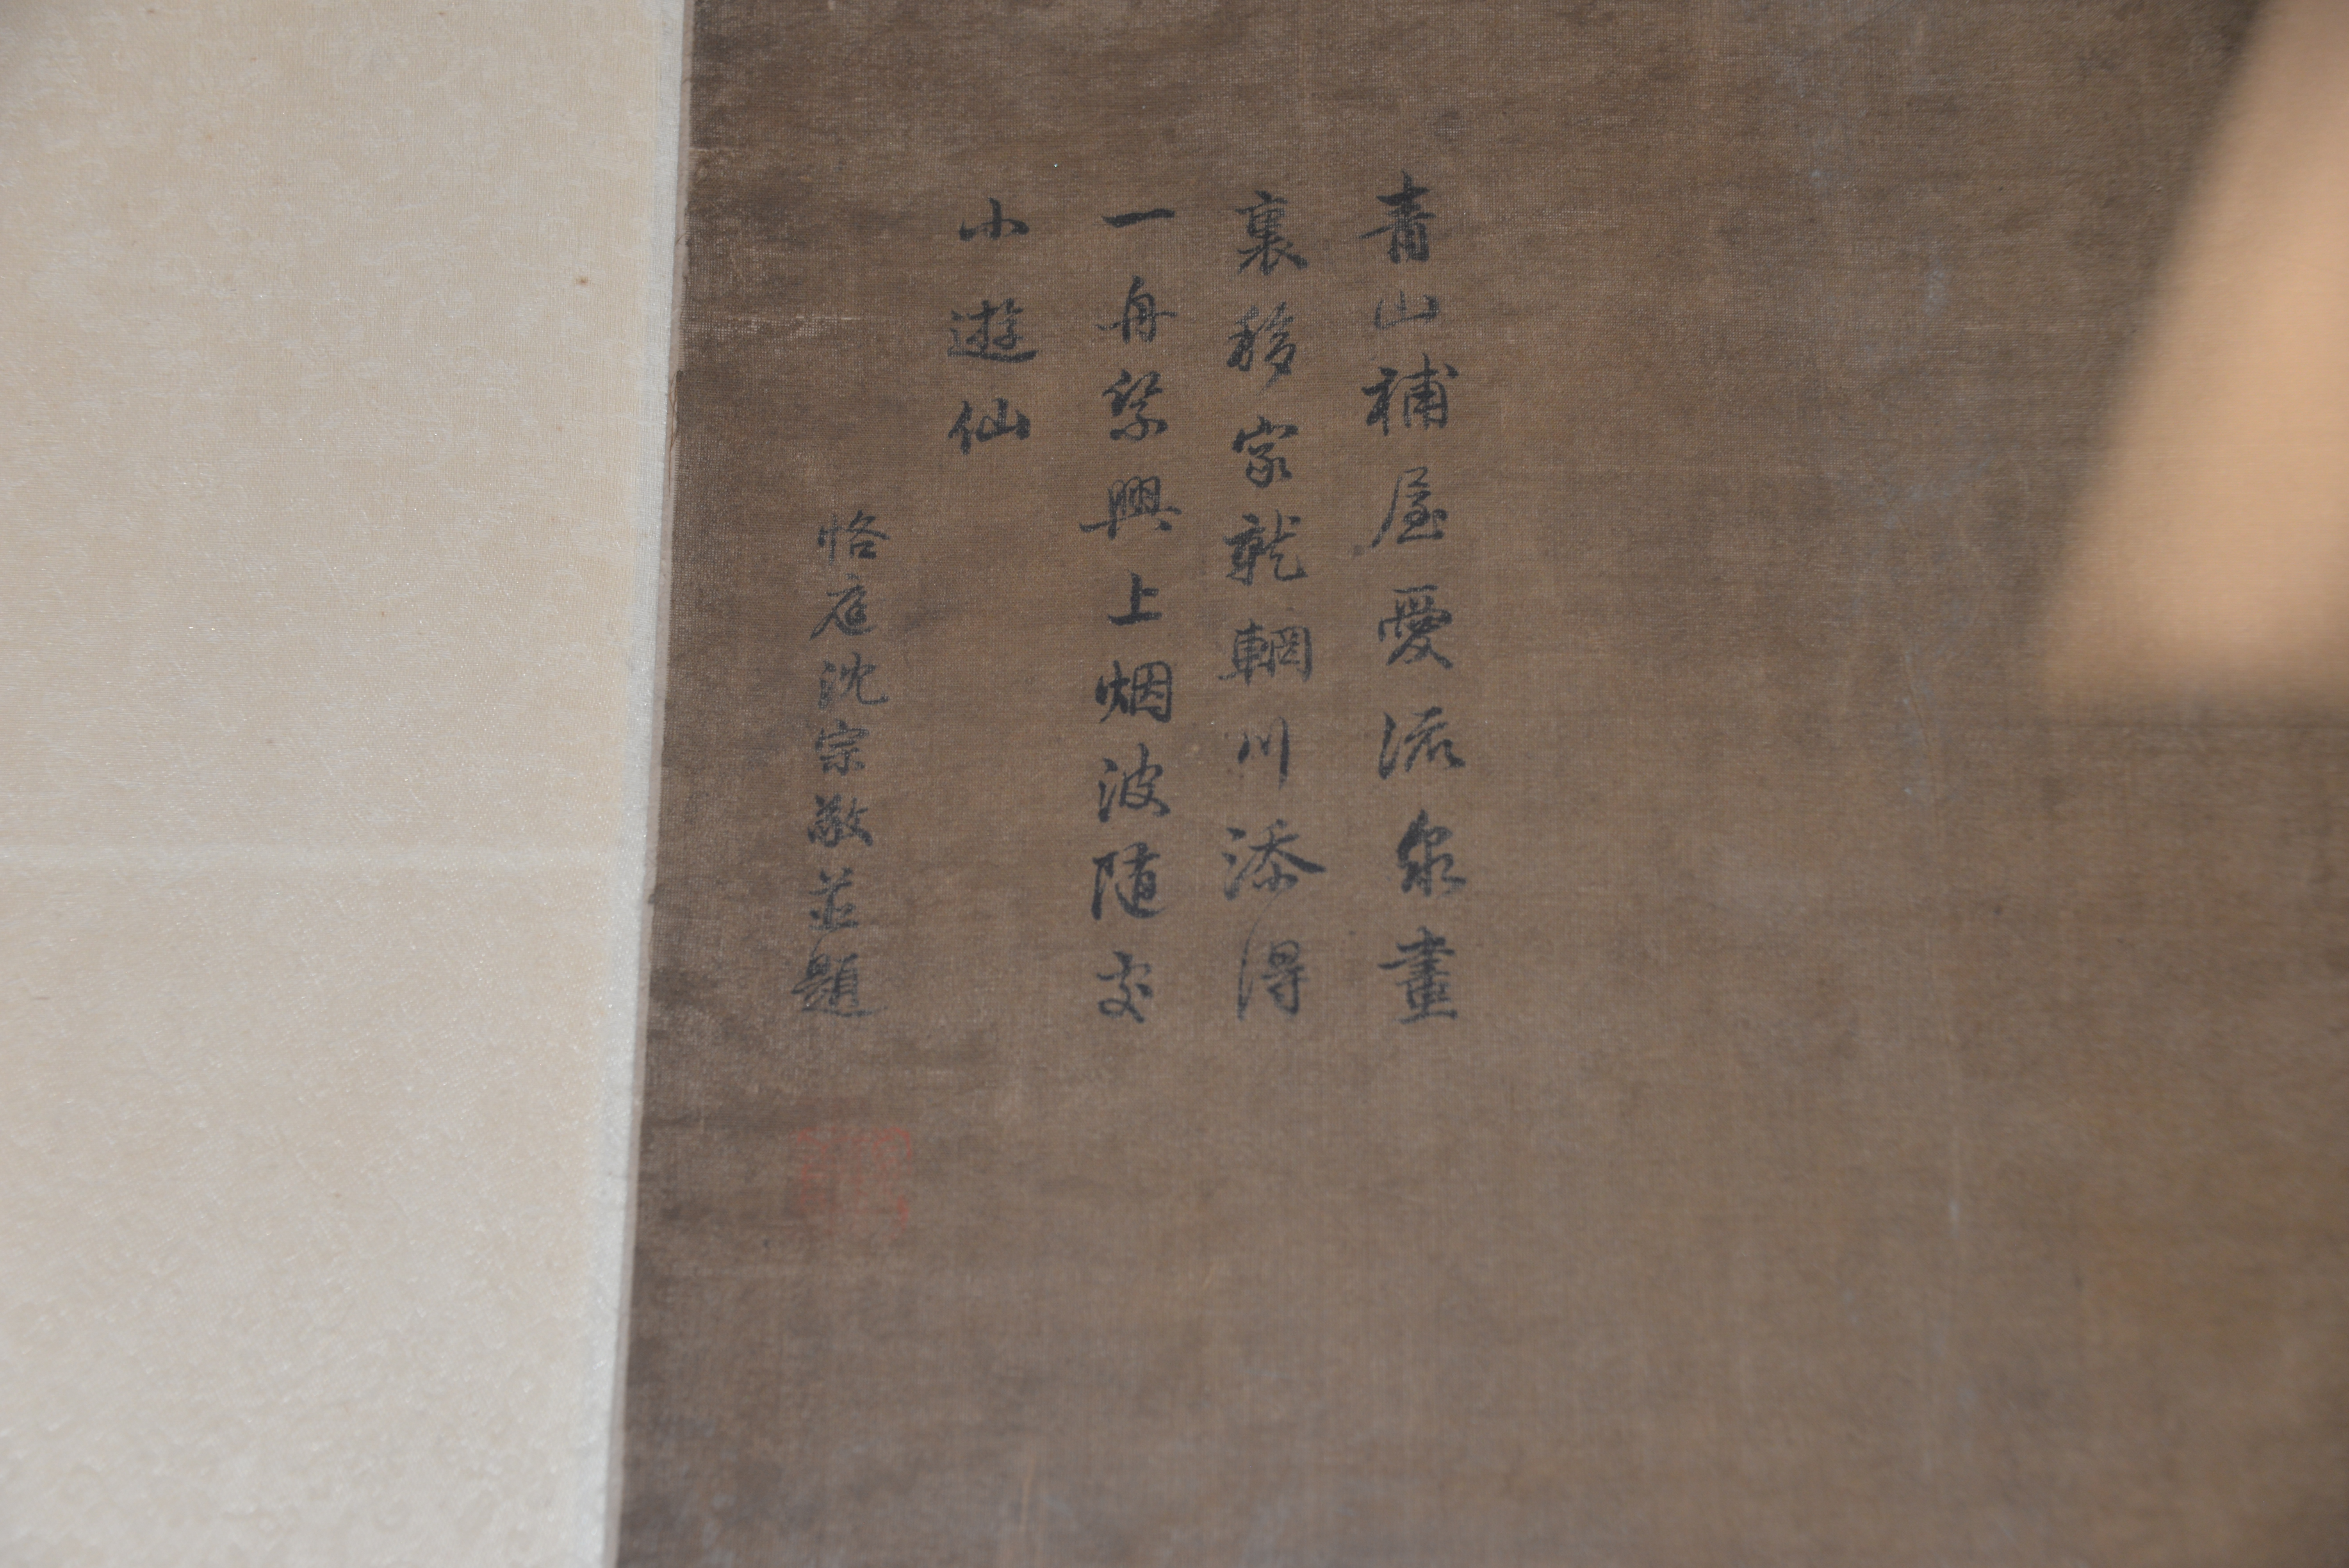 青山補屋愛流泉畫
裏移家就輞川添得
一舟乘興上烟波随處
小遊仙
恪庭沈宗敬並題